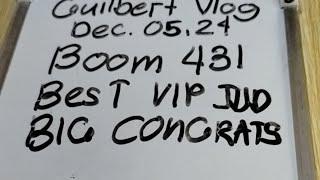 Guilbert Vlog
Dec. 05, 24
Boom 431
BesT VIP JUD
BIG CONGRATS